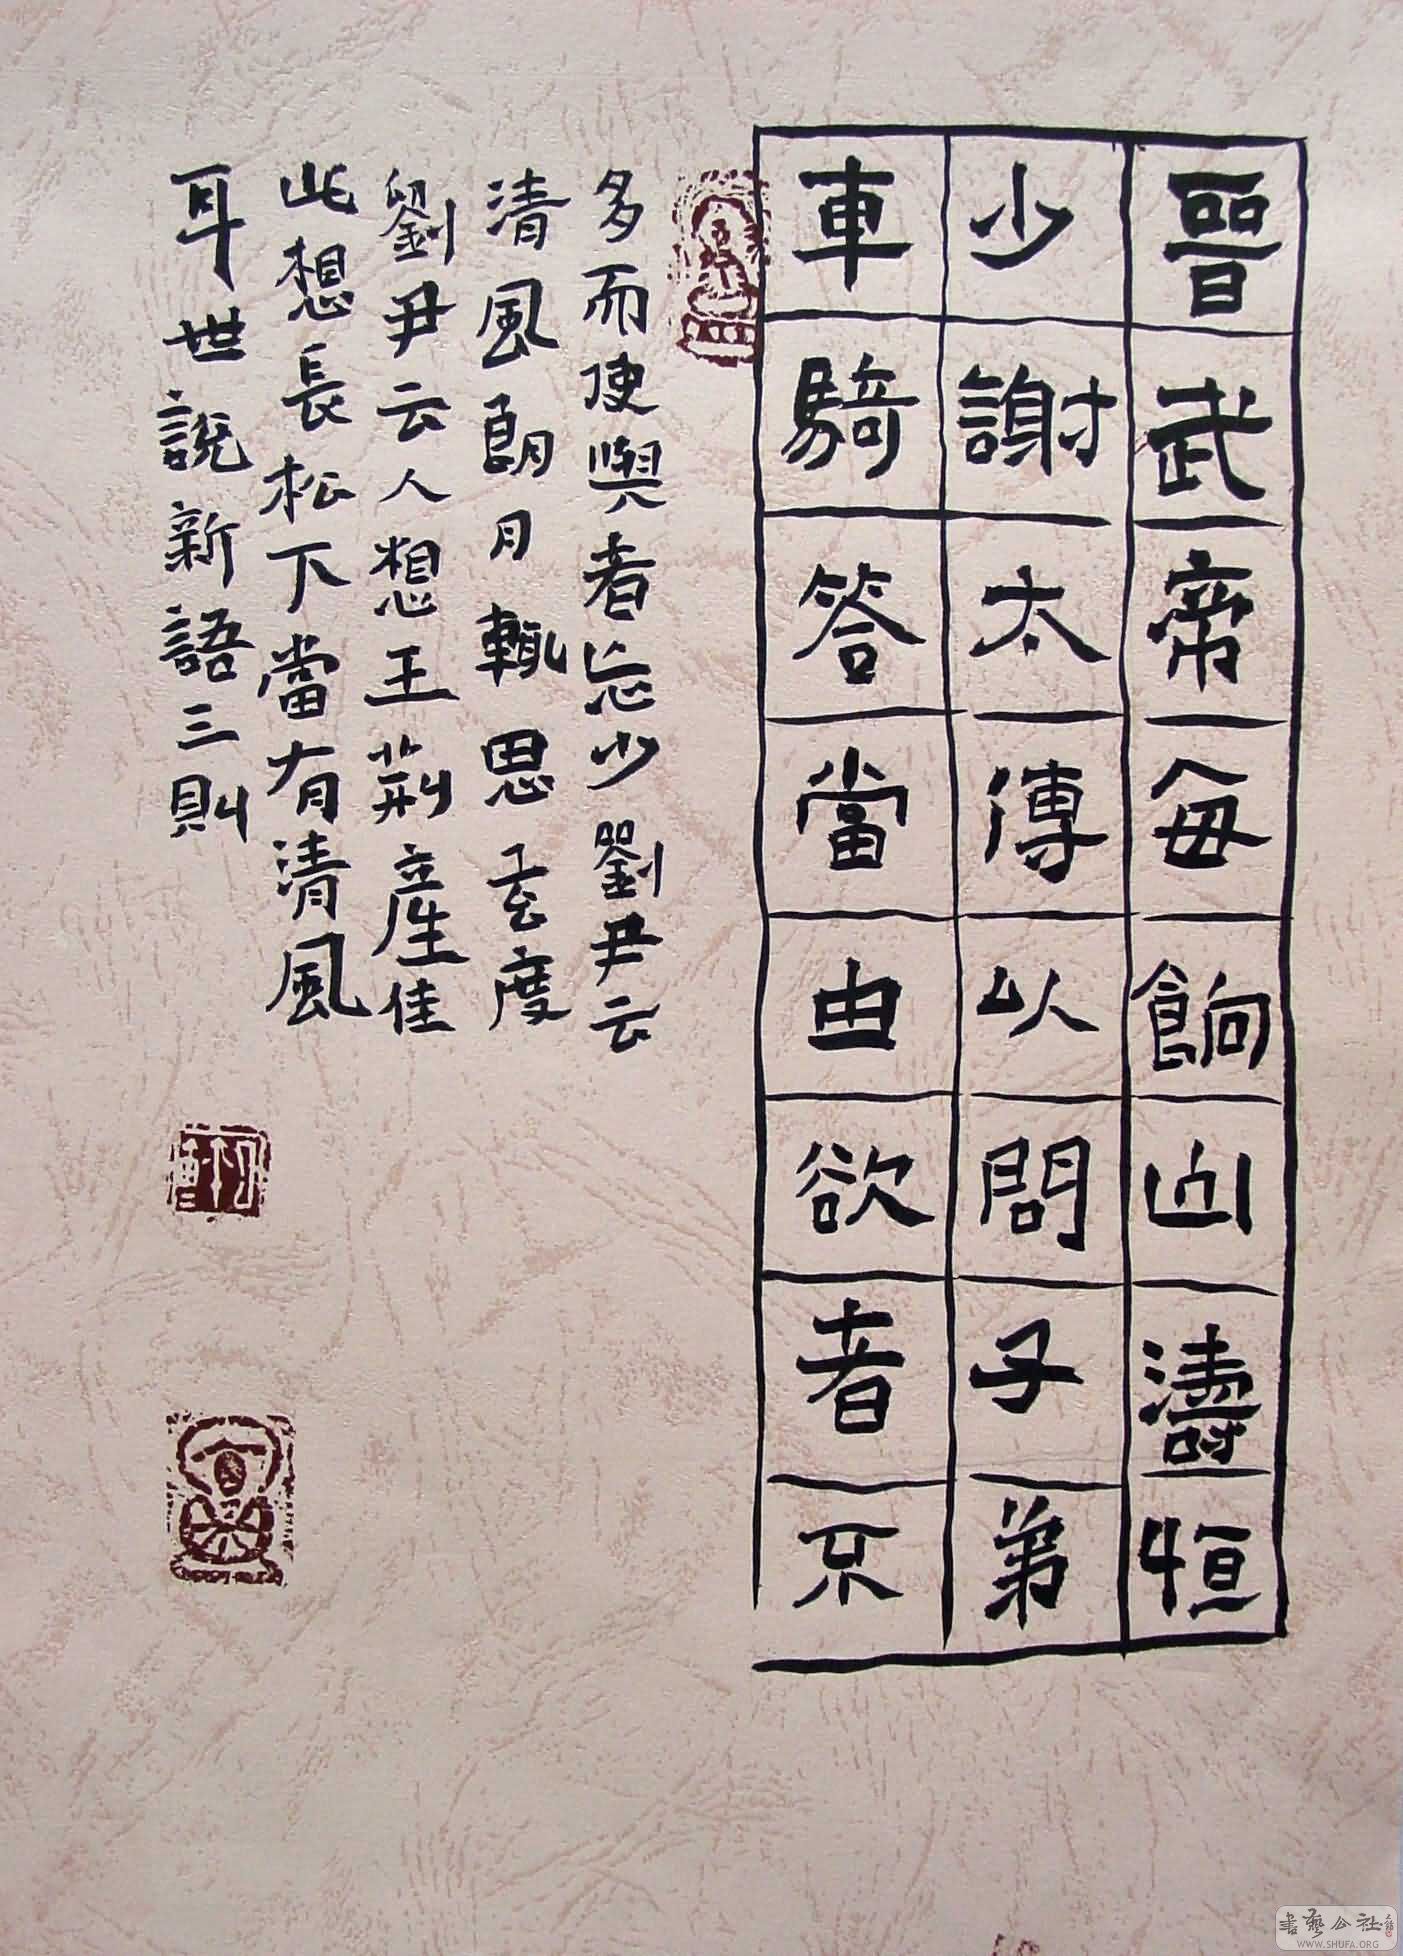 晉武帝每餉山濤恒
少謝太傅以問子弟
車騎答當由欲者不
多而使與者忘少劉尹云
清風朗月輒思玄度
劉尹云人想王荊產佳
此想長松下當有清風
耳世說新語三則
書藝公社
WWW.SHUFA.ORG